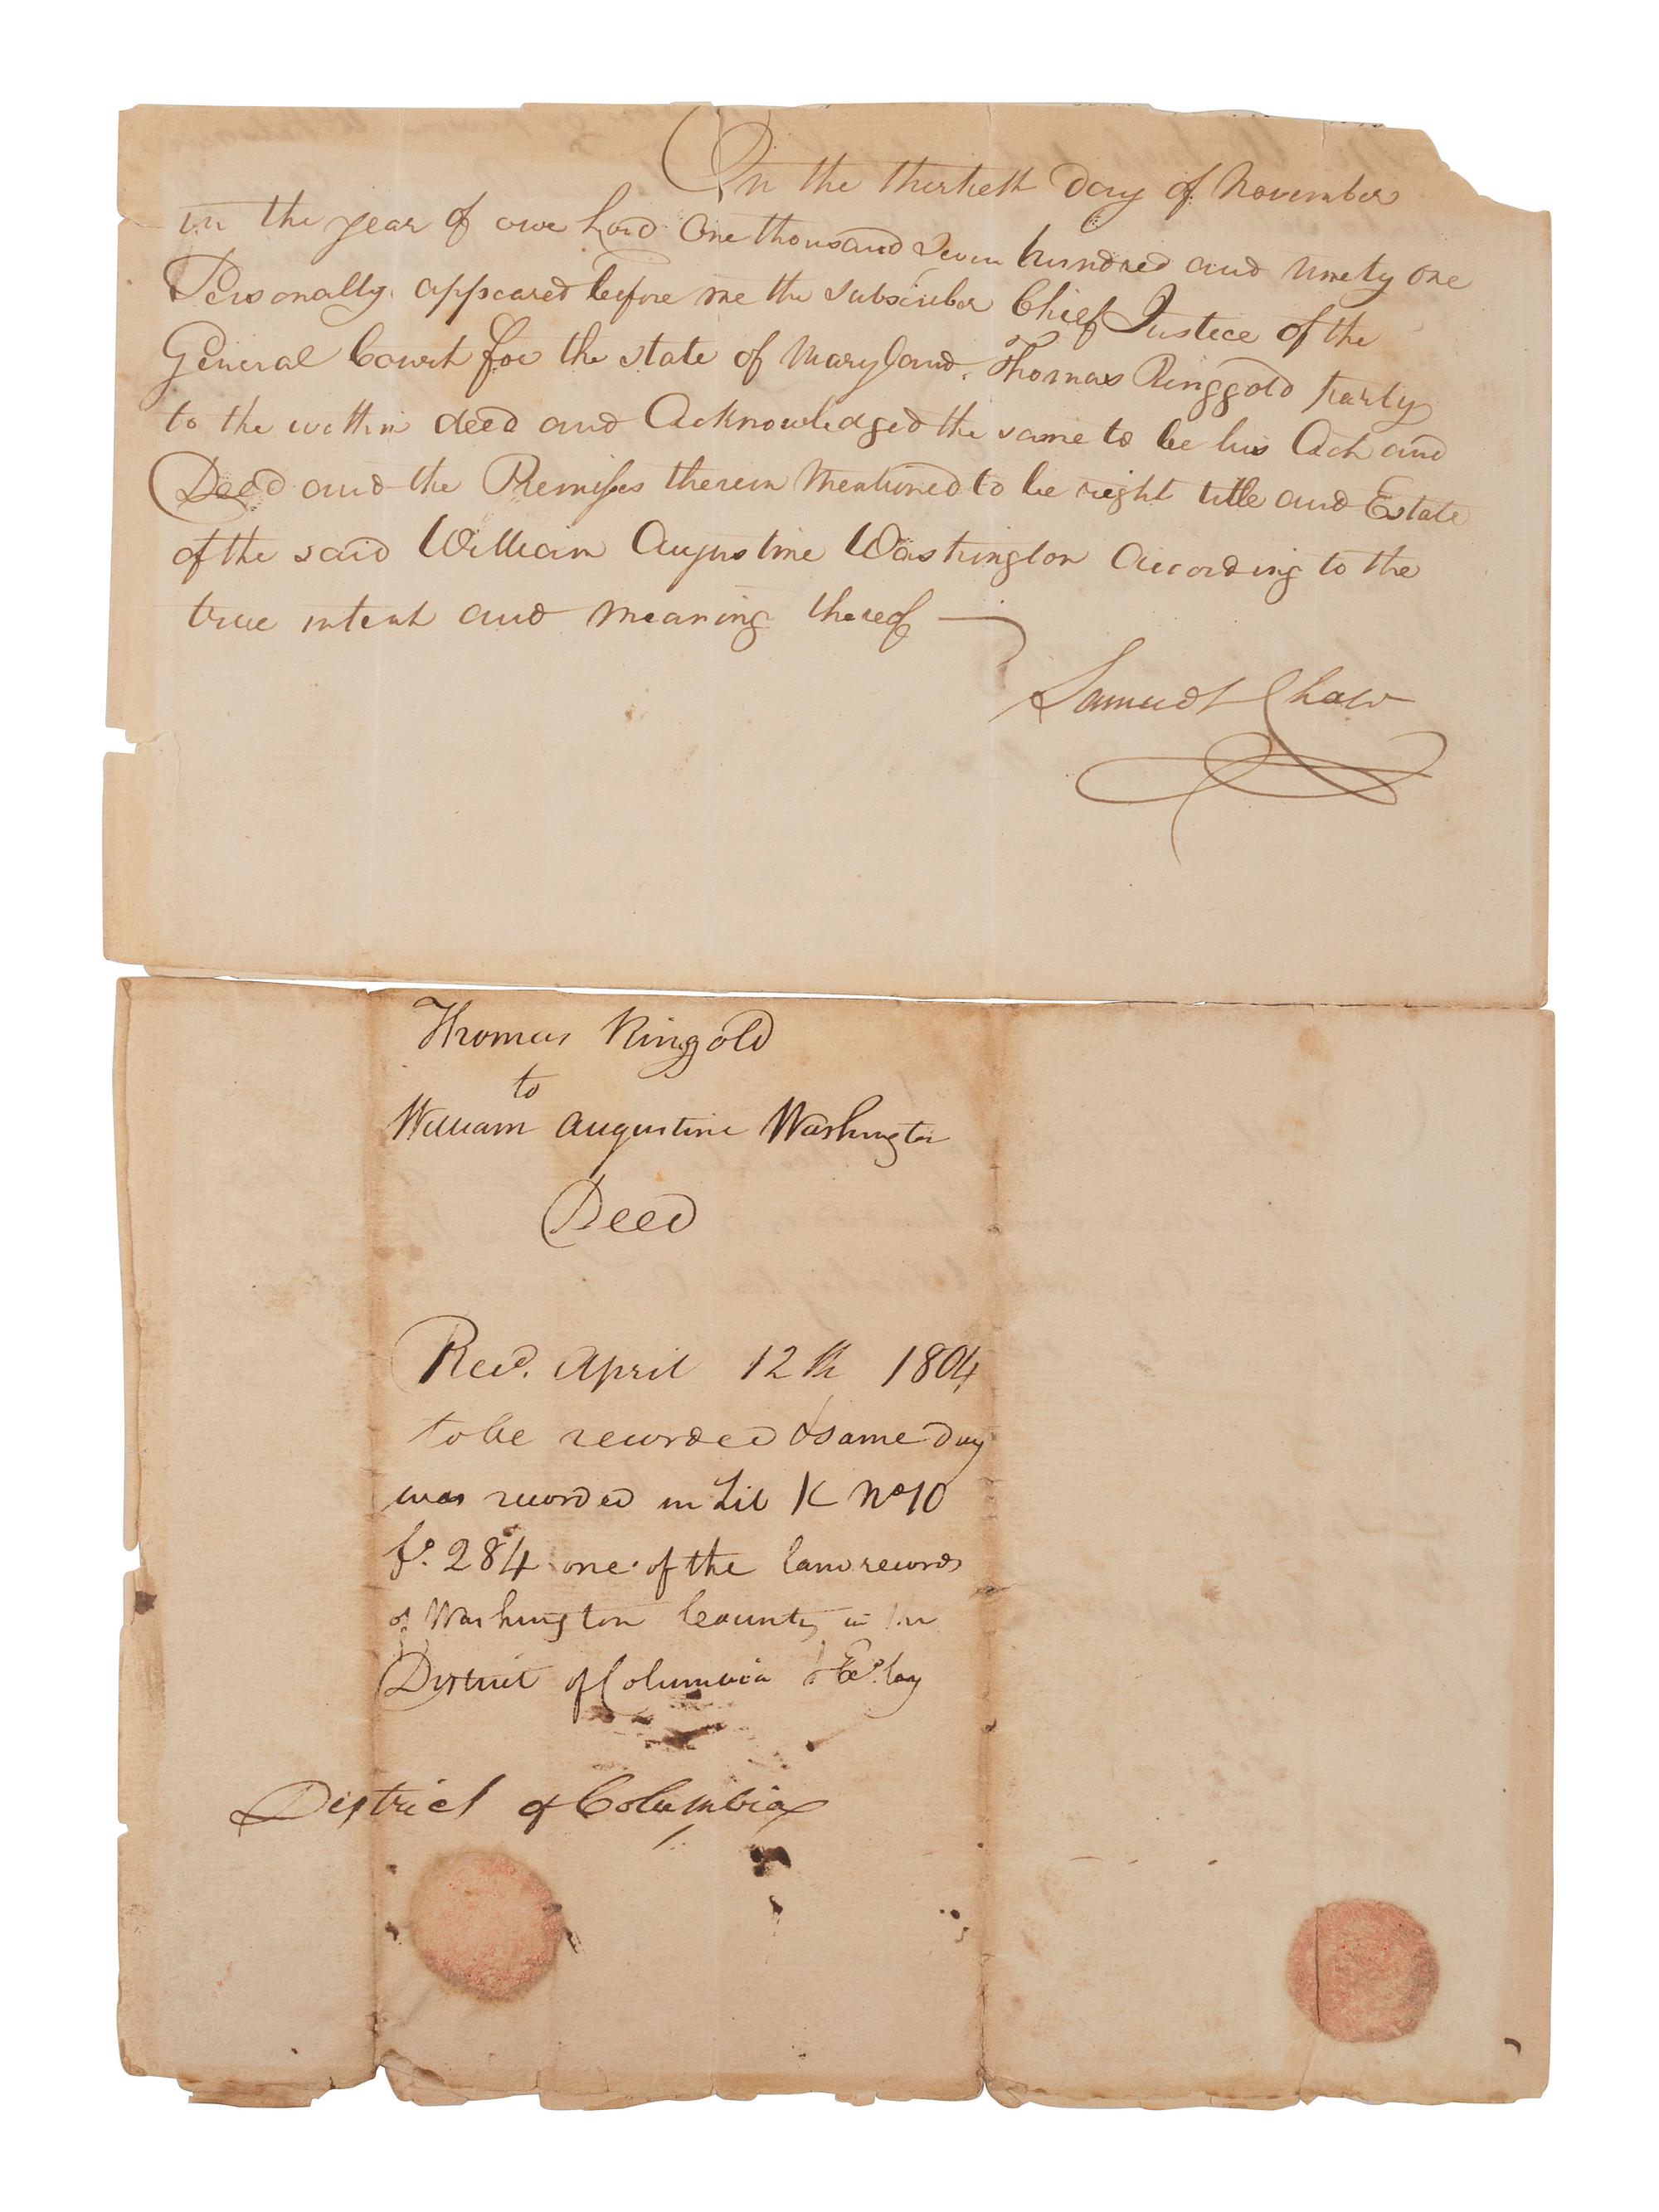 On the thirtieth Day of November
in the year of our Lord One thousand Seven hundred and Ninety One
Personally appeared before me the subscriber Chief Justice of the
General Court for the state of Maryland. Thomas Ringgold party
to the within deed and Acknowledged the same to be his Act and
Deed and the Premises therein Mentioned to be right title and Estate
of the said William Augustine Washington According to the
true intent and Meaning thereof
Samuel Chase
Thomas Ringgold
to
William Augustine Washington
Deed
Recd. April 12th 1804
to be recorded & same day
was recorded in Lib K No 10
fo. 284 one of the land records
of Washington County in the
District of Columbia & Ex.
District of Columbia